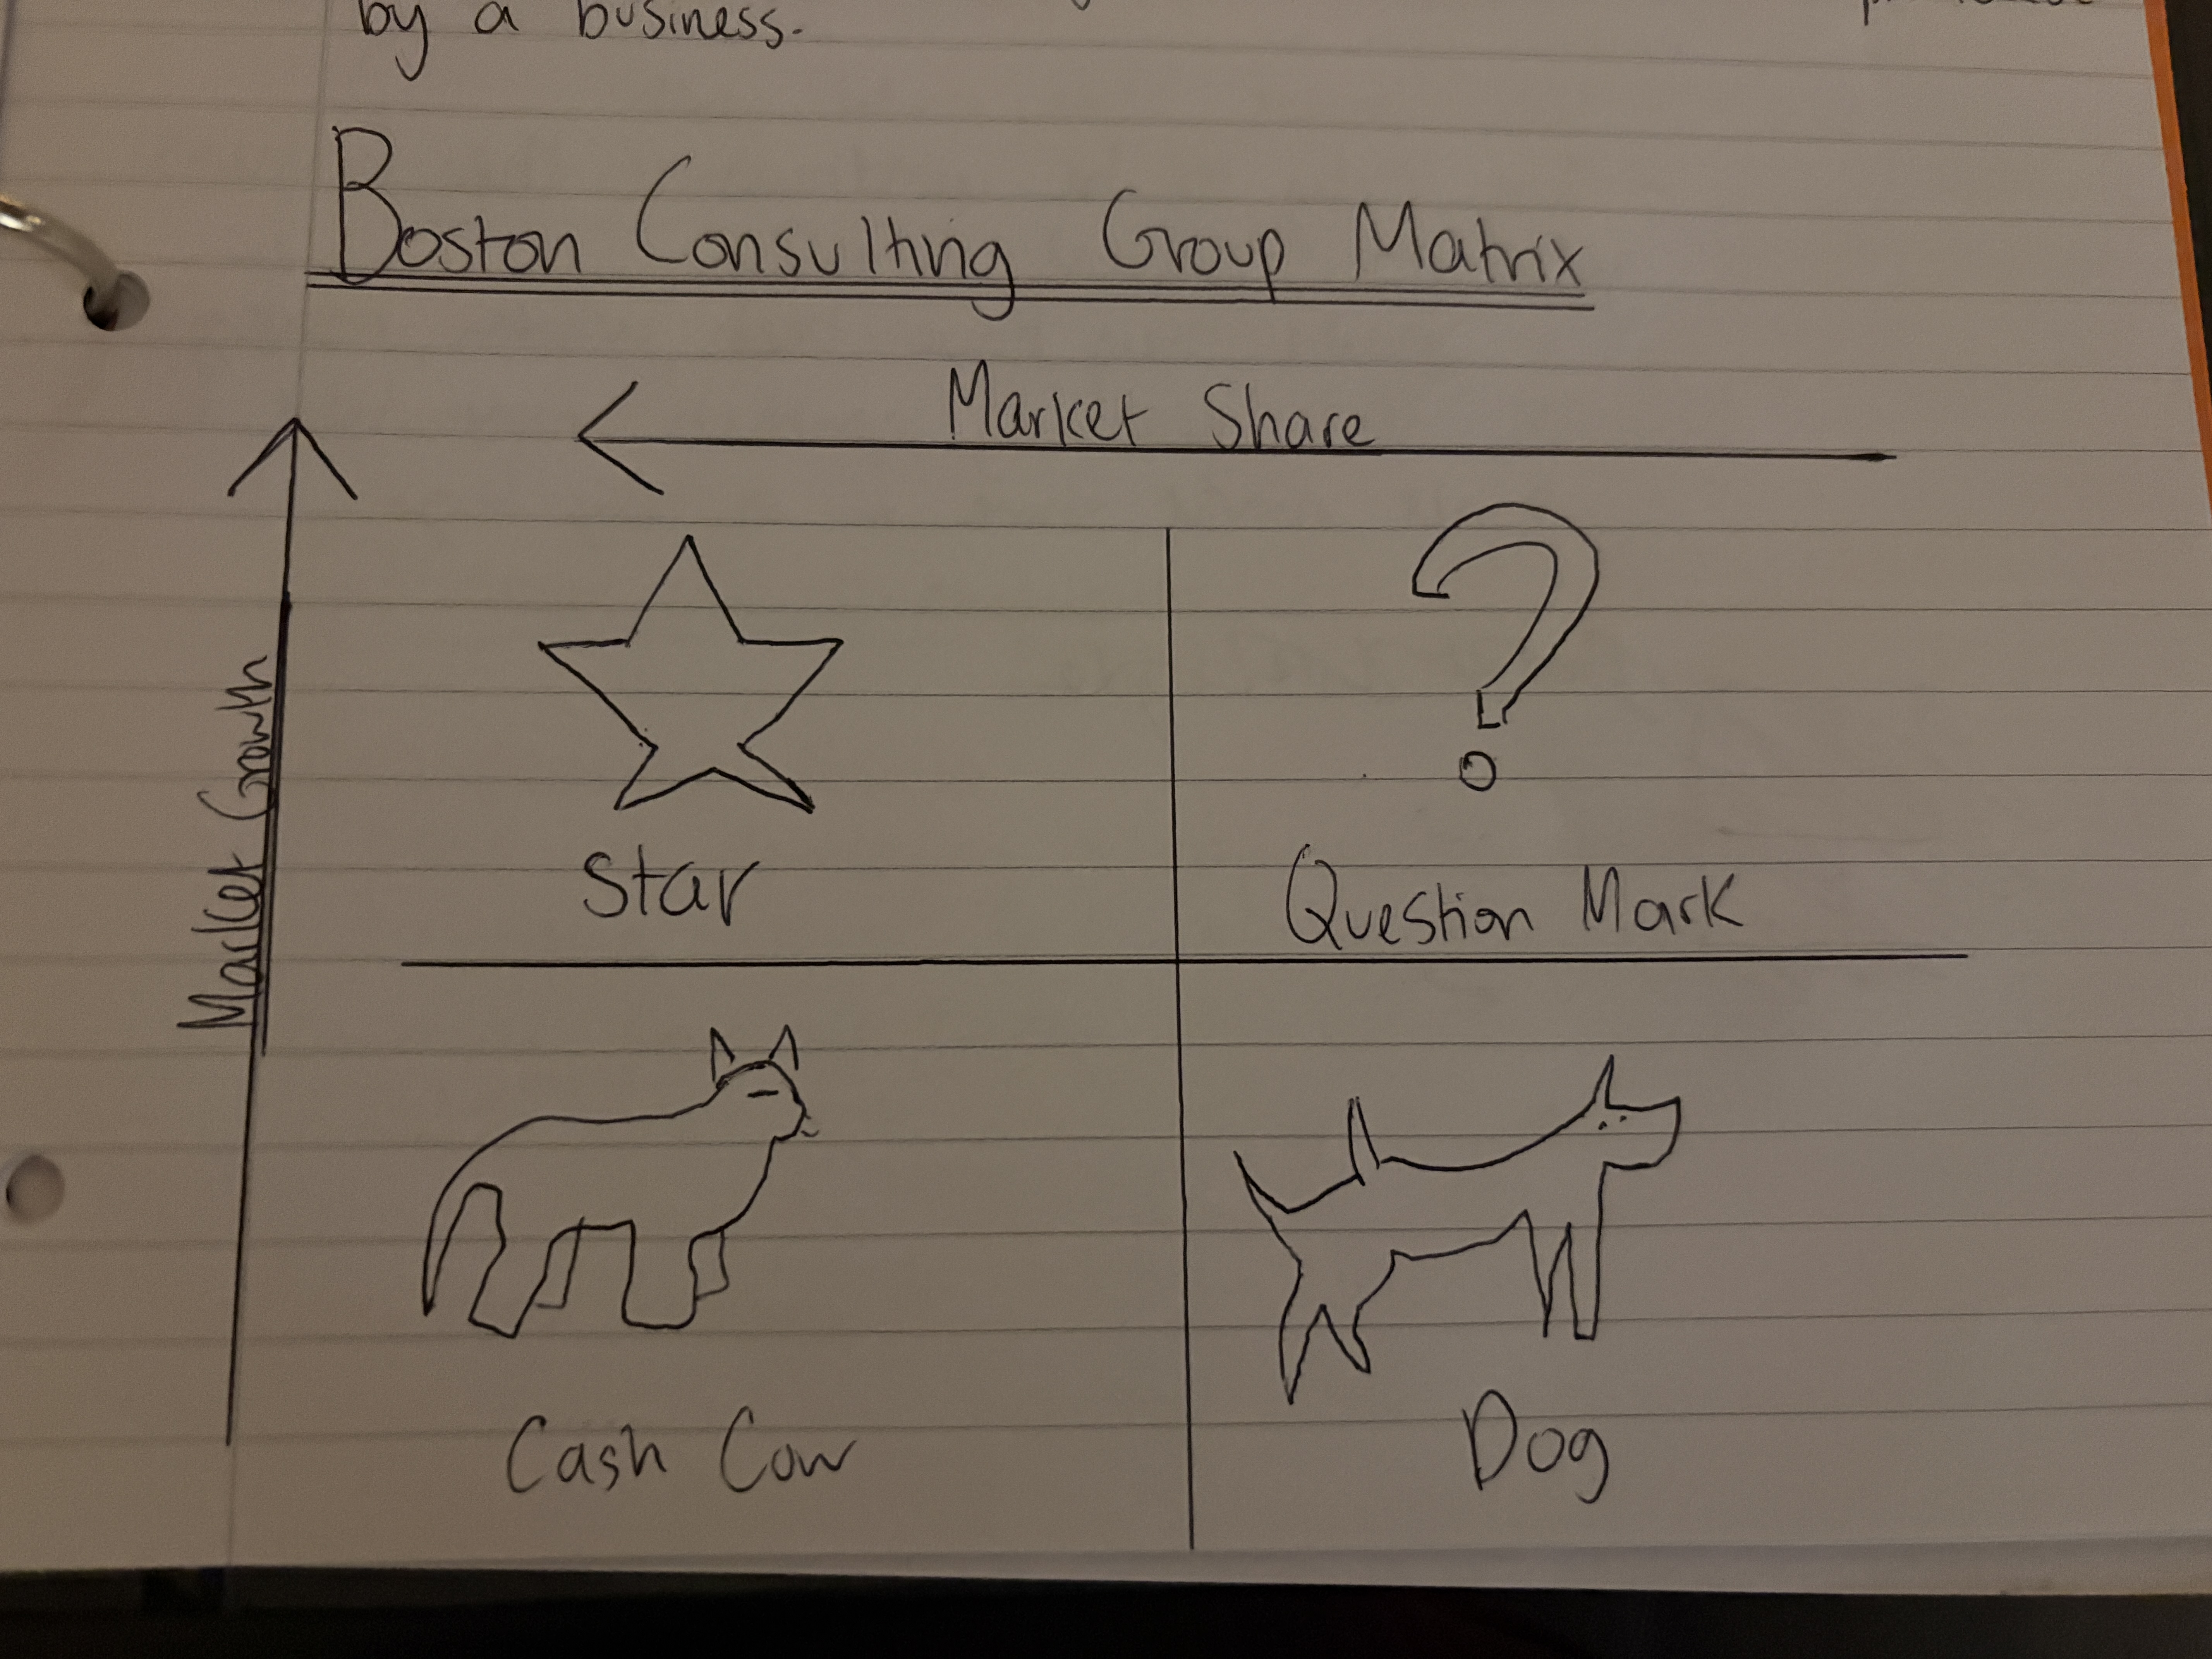 by a business.
Boston Consulting Group Matrix
Market Share
Market Growth
Star
Question Mark
Cash Cow
Dog